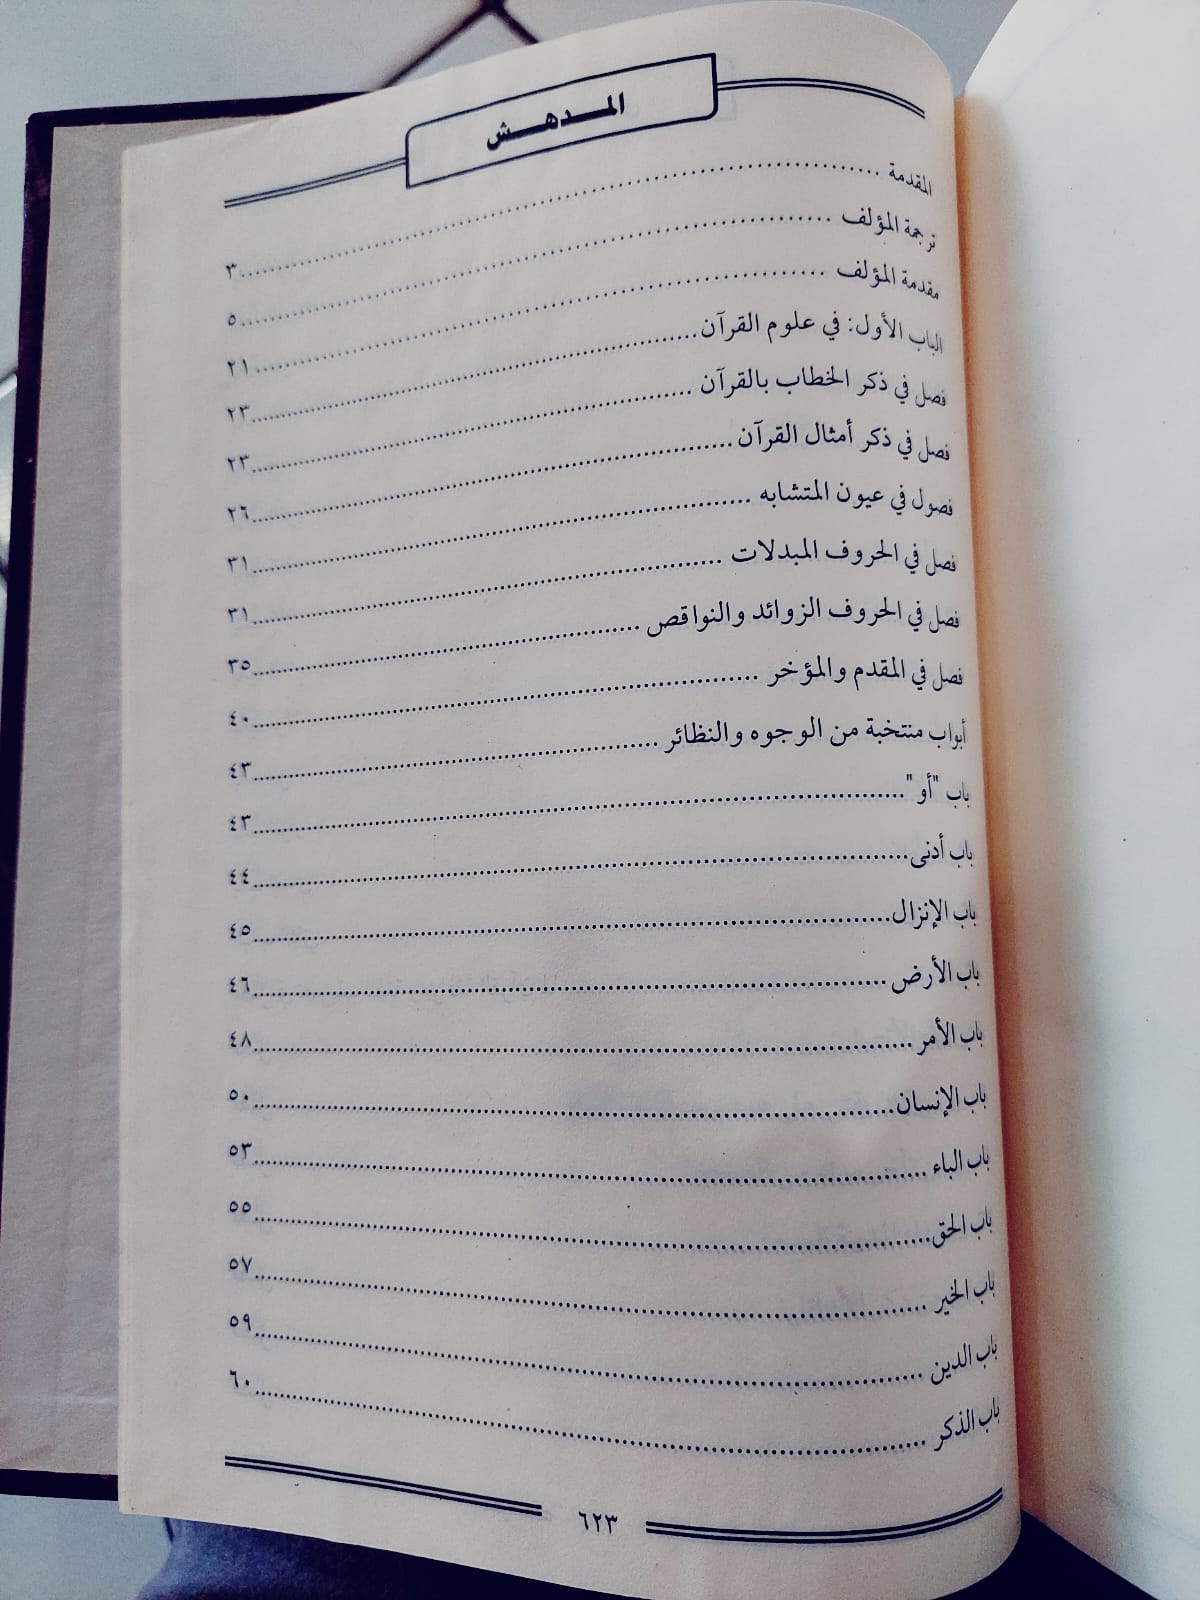 المدهش
المقدمة ........ ٣
ترجمة المؤلف ........ ٥
مقدمة المؤلف ........ ٢١
الباب الأول: في علوم القرآن ........ ٢٣
فصل في ذكر الخطاب بالقرآن ........ ٢٣
فصل في ذكر أمثال القرآن ........ ٢٦
فصول في عيون المتشابه ........ ٣١
فصل في الحروف المبدلات ........ ٣١
فصل في الحروف الزوائد والنواقص ........ ٣٥
فصل في المقدم والمؤخر ........ ٤٠
أبواب منتخبة من الوجوه والنظائر ........ ٤٣
باب "أو" ........ ٤٣
باب أدنى ........ ٤٤
باب الإنزال ........ ٤٥
باب الأرض ........ ٤٦
باب الأمر ........ ٤٨
باب الإنسان ........ ٥٠
باب الباء ........ ٥٣
باب الحق ........ ٥٥
باب الخير ........ ٥٧
باب الدين ........ ٥٩
باب الذكر ........ ٦٠
٦٢٣